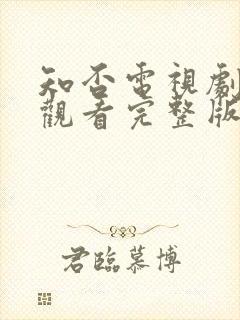 知否電視劇
觀看完整版
君臨慕博